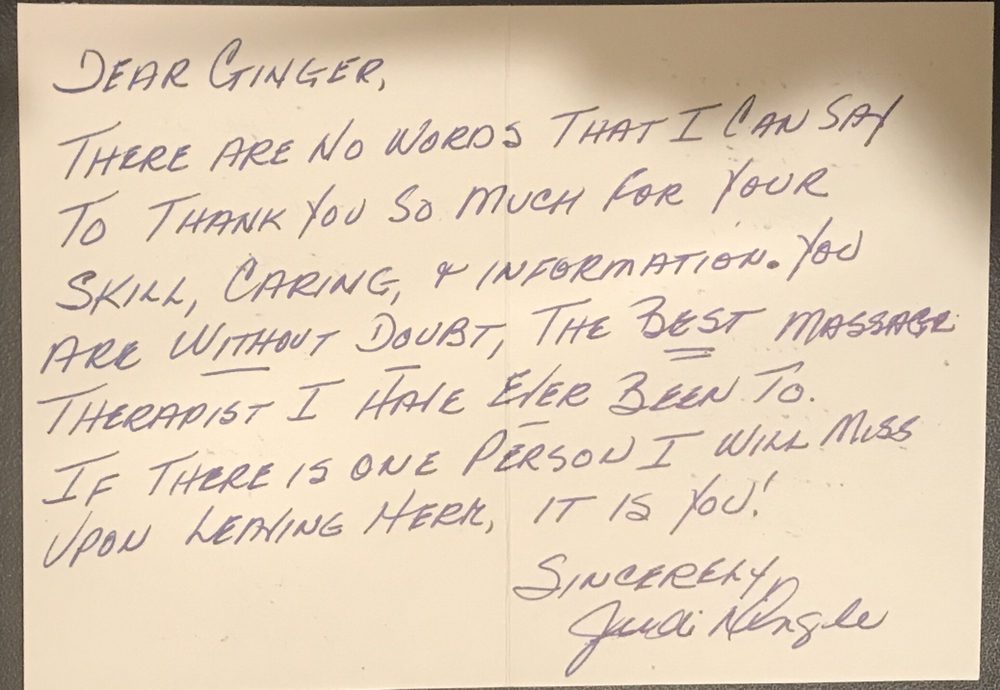 DEAR GINGER,
THERE ARE NO WORDS THAT I CAN SAY
TO THANK YOU SO MUCH FOR YOUR
SKILL, CARING, & INFORMATION. YOU
ARE WITHOUT DOUBT, THE BEST MASSAGE
THERAPIST I HAVE EVER BEEN TO.
IF THERE IS ONE PERSON I WILL MISS
UPON LEAVING HERE, IT IS YOU!
SINCERELY,
Judi